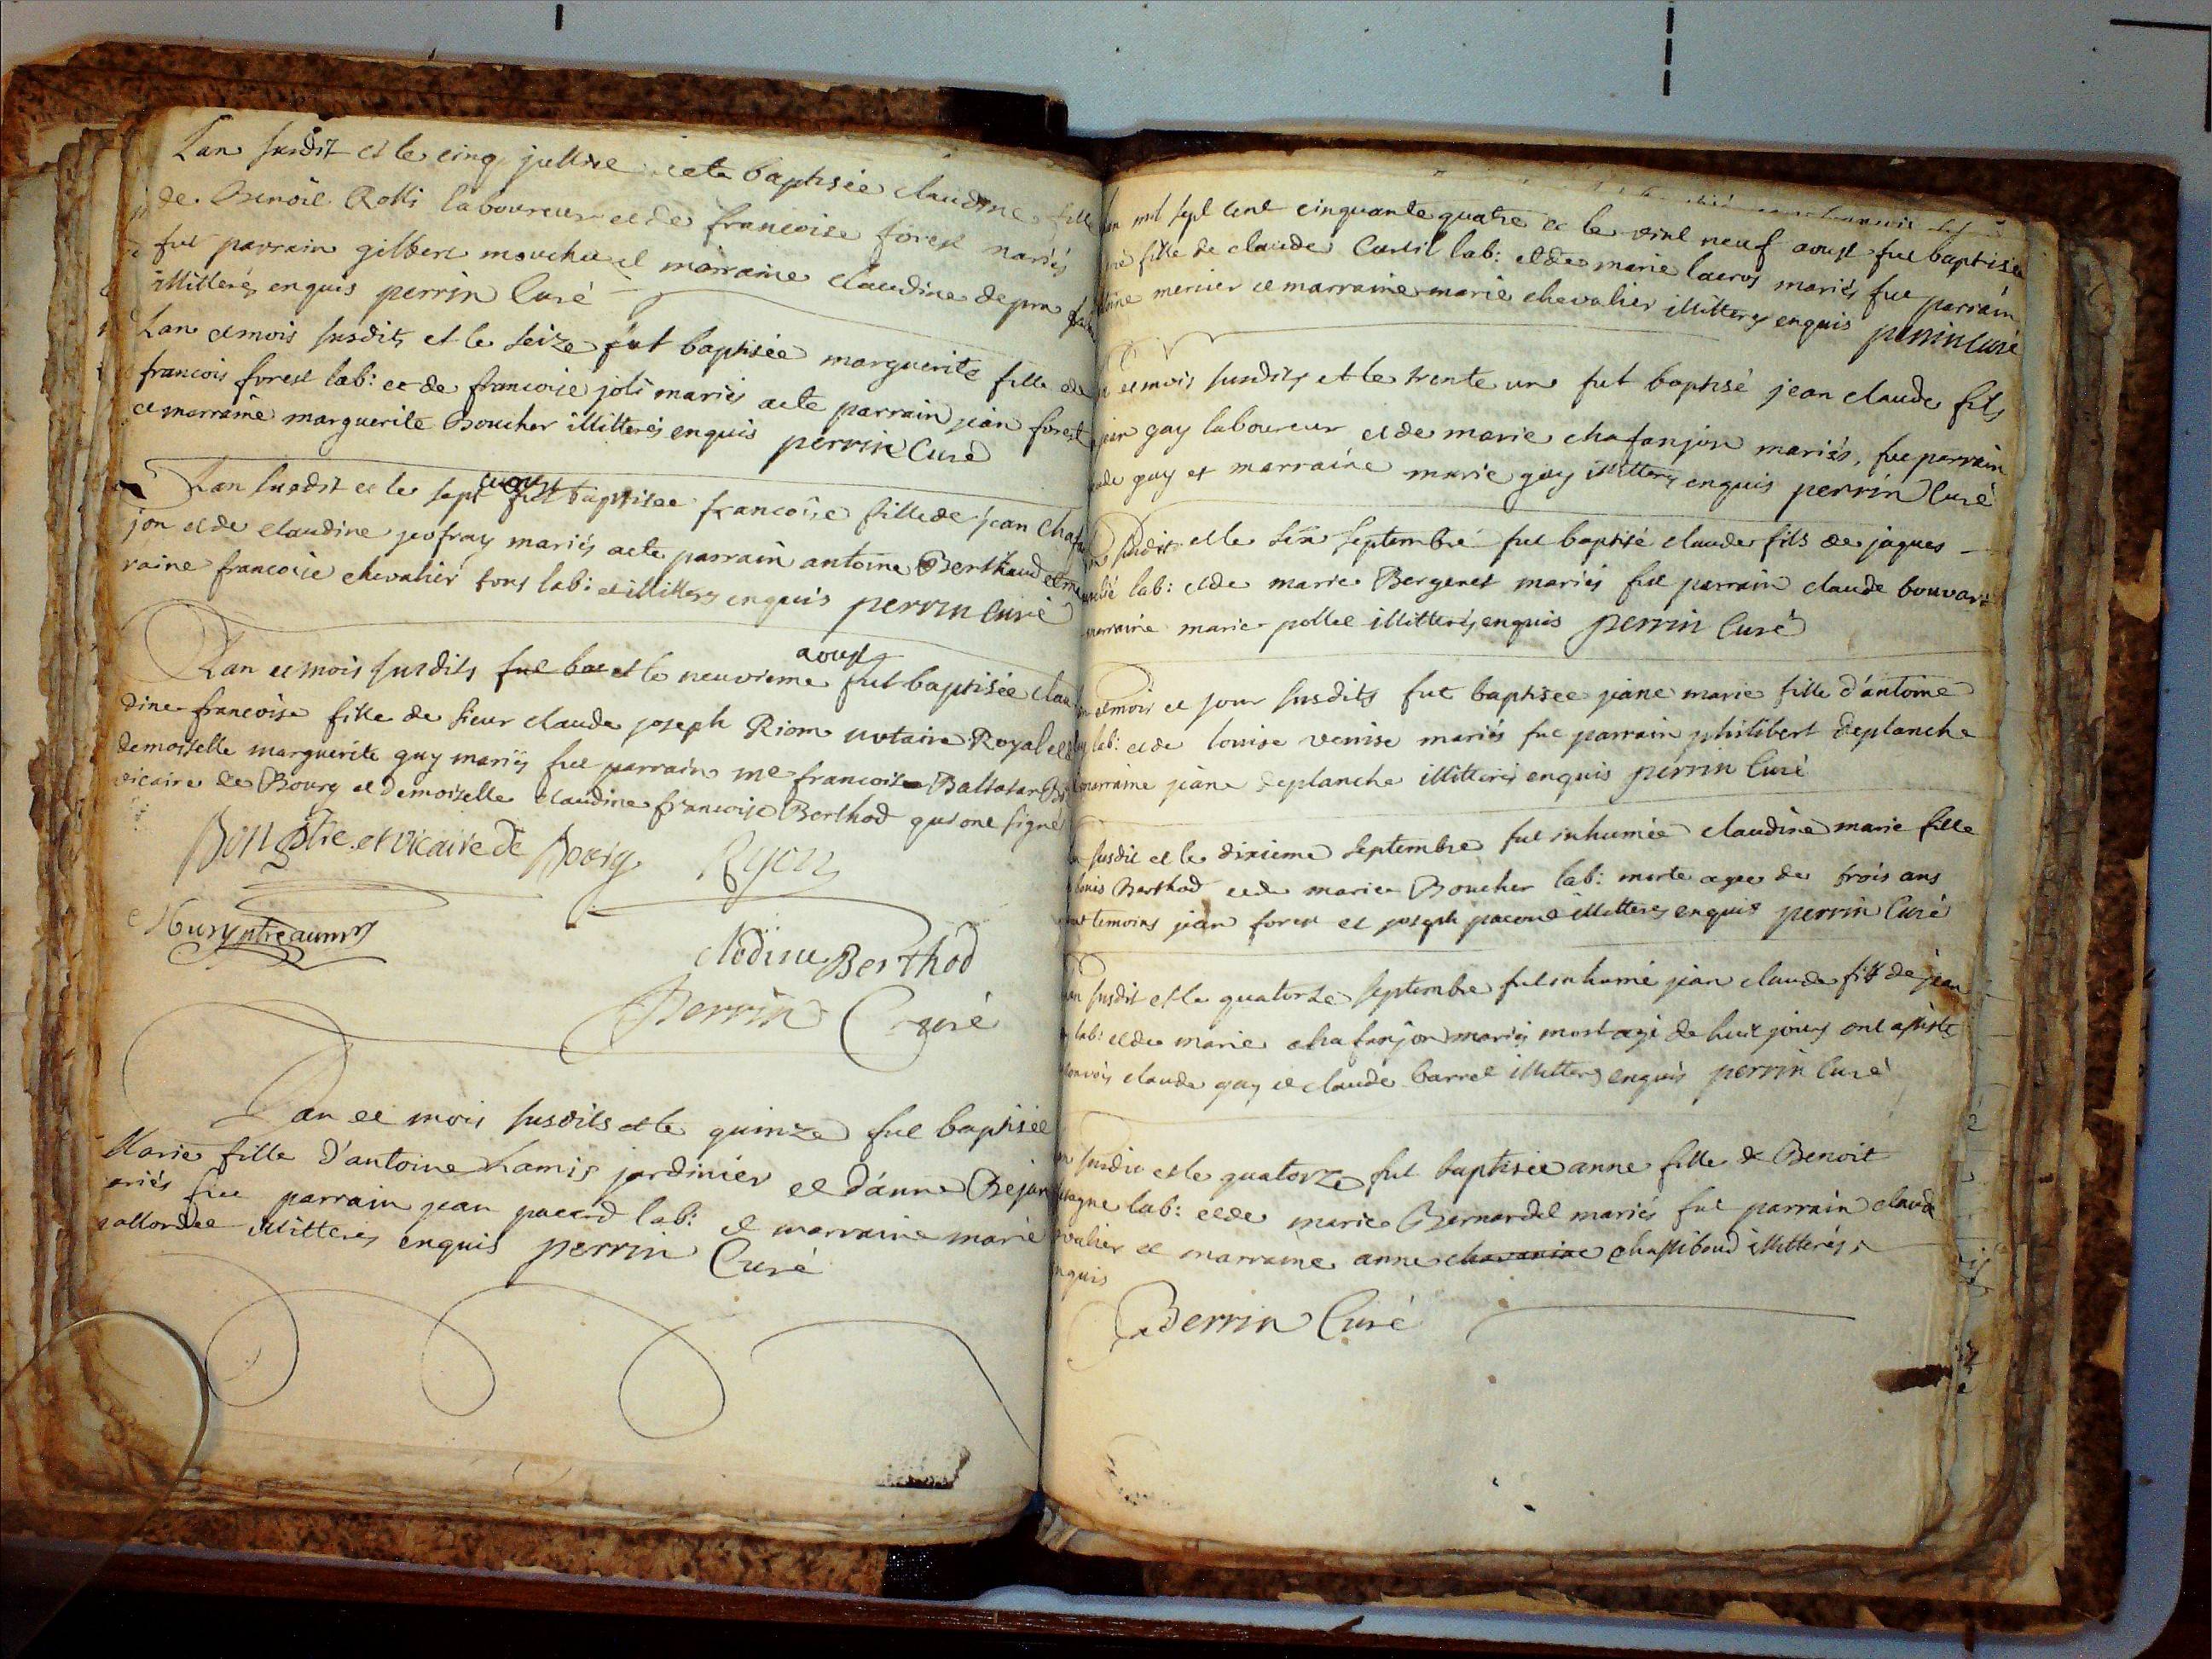 Lan susdit et le cinq juillet a ete baptisée claudine fille
de Benoit Rolli laboureur et de francoise forest mariés
fut parrain gilbert mouchu et marraine claudine depra
illitterés enquis perrin Curé
Lan et mois susdits et le seize fut baptisée marguerite fille de
francois forest lab: et de francoise joli mariés a ete parrain jean forest
et marraine marguerite Boucher illitterés enquis perrin Curé
Lan susdit et le sept aoust fut baptisee francoise fille de jean chafan
jon et de claudine jeofray mariés a ete parrain antoine Berthaud et mar
raine francoise chevalier tous lab: et illitterés enquis perrin Curé
Lan et mois susdits fut ba et le neuvieme aoust fut baptisée clau
dine francoise fille de sieur claude joseph Riom notaire Royal et de
demoiselle marguerite guy mariés fut parrain me francois Baltasar
vicaire de Bourg et demoiselle claudine francoise Berthod qui ont signé
Bon ptre et vicaire de Bourg Ryon
ptre aumr
clodine Berthod
Perrin Curé
Lan et mois susdits et le quinze fut baptisée
Marie fille d'antoine Lamis jardinier et d'anne Rejan
ariés fut parrain jean pacard lab: et marraine marie
illitterés enquis perrin Curé
lan mil sept cent cinquante quatre et le vint neuf aoust fut baptisée
fille de claude Curtil lab: et de marie lacros mariés fut parrain
mercier et marraine marie chevalier illitterés enquis perrin Curé
et mois susdits et le trente un fut baptisé jean claude fils
jean gay laboureur et de marie chafanjon mariés, fut parrain
aude gay et marraine marie gay illitterés enquis perrin Curé
susdit et le six septembre fut baptisé claude fils de jaques
lab: et de marie Bergeret mariés fut parrain claude bouvard
marraine marie pollet illitterés enquis perrin Curé
et mois et jour susdits fut baptisee jeane marie fille d'antoine
lab: et de louise venise mariés fut parrain philibert deplanche
marraine jeane deplanche illitterés enquis perrin Curé
susdit et le dixieme septembre fut inhumée claudine marie fille
louis Berthod et de marie Boucher lab: morte agee de trois ans
temoins jean forest et joseph pacoud illitterés enquis perrin Curé
lan susdit et le quatorse septembre fut inhumé jean claude fils de jean
lab: et de marie chafanjon mariés mort agé de huit jours ont assisté
convois claude gay et claude barret illitterés enquis perrin Curé
susdit et le quatorze fut baptisée anne fille de Benoit
lab: et de marie Bernardel mariés fut parrain claude
valier et marraine anne chassiboud illitterés
nquis
Perrin Curé